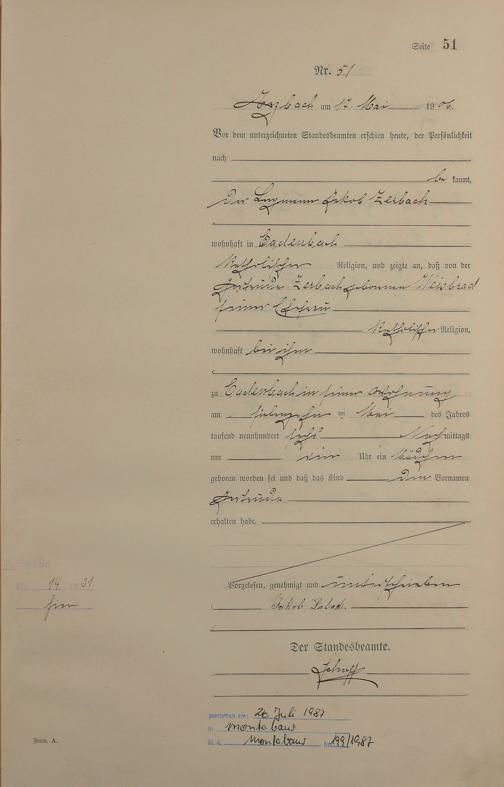 Seite 51
Nr. 51
am 17. Mai 1906.
Vor dem unterzeichneten Standesbeamten erschien heute, der Persönlichkeit
nach
be kannt,
der Jakob Zerbach
wohnhaft in Cadenbach
katholischer Religion, und zeigte an, daß von der
Zerbach geborenen Weisbrod
seiner Ehefrau
katholischer Religion,
wohnhaft bei ihm
zu Cadenbach in seiner Wohnung
am siebzehn ten Mai des Jahres
tausend neunhundert sechs Nachmittags
um Uhr ein Mädchen
geboren worden sei und daß das Kind den Vornamen
erhalten habe.
Vorgelesen, genehmigt und unterschrieben
Jakob
Der Standesbeamte.
14 31
hier
gestorben am: 20. Juli 1987
in Montabaur
St. A. Montabaur Nr. 199/1987
Form. A.